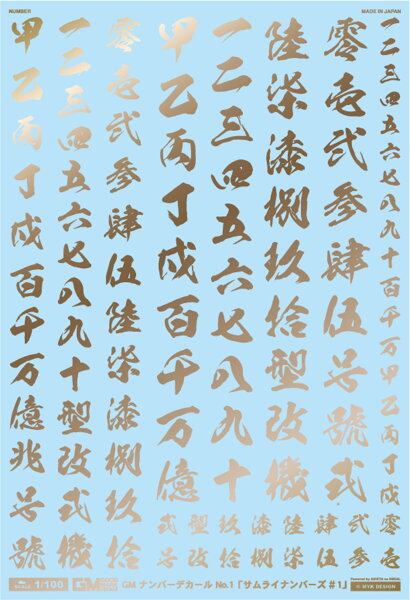 NUMBER
MADE IN JAPAN
甲乙丙丁戊百千万億兆号號
一二三四五六七八九十型改式機
零壱弐参肆伍陸柒漆捌玖拾
甲乙丙丁戊百千万億
一二三四五六七八九十
陸柒漆捌玖拾型改機
零壱弐参肆伍号號式
一二三四五六七八九十百千万甲乙丙丁
SCALE 1/100
GM ナンバーデカール No.1「サムライナンバーズ #1」
© HYK DESIGN